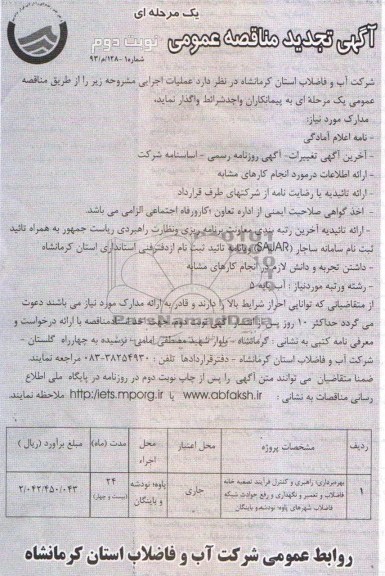 یک مرحله ای
آگهی تجدید مناقصه عمومی
نوبت دوم
شماره ۱-۱۲۸/م/۹۳
شرکت آب و فاضلاب استان کرمانشاه در نظر دارد عملیات اجرایی مشروحه زیر را از طریق مناقصه
عمومی یک مرحله ای به پیمانکاران واجدشرایط واگذار نماید.
مدارک مورد نیاز:
- نامه اعلام آمادگی
- آخرین آگهی تغییرات- آگهی روزنامه رسمی - اساسنامه شرکت
- ارائه اطلاعات درمورد انجام کارهای مشابه
- ارائه تائیدیه یا رضایت نامه از شرکتهای طرف قرارداد
- اخذ گواهی صلاحیت ایمنی از اداره تعاون ،کارورفاه اجتماعی الزامی می باشد.
- ارائه تائیدیه آخرین رتبه بندی معاونت برنامه ریزی ونظارت راهبردی ریاست جمهور به همراه تائید
ثبت نام سامانه ساجار (SAJAR) تائید ثبت نام ازدفترفنی استانداری استان کرمانشاه
- داشتن تجربه و دانش لازم در انجام کارهای مشابه
- رشته ورتبه موردنیاز : آب پایه ۵
از متقاضیانی که توانایی احراز شرایط بالا را دارند و قادربه ارائه مدارک مورد نیاز می باشند دعوت
می گردد حداکثر ۱۰ روز پس از آگهی نوبت دوم جهت مناقصه با ارائه درخواست و
معرفی نامه کتبی به نشانی : کرمانشاه - بلوار شهید مصطفی امامی- نرسیده به چهارراه گلستان -
شرکت آب و فاضلاب استان کرمانشاه - دفترقراردادها تلفن : ۳۸۲۵۴۹۳۰-۰۸۳ مراجعه نمایند.
ضمنا متقاضیان می توانند متن آگهی را پس از چاپ نوبت دوم در روزنامه در پایگاه ملی اطلاع
رسانی مناقصات به نشانی : http://iets.mporg.ir یا www.abfaksh.ir ملاحظه نمایند.
ردیف مشخصات پروژه محل اعتبار محل اجراء مدت (ماه) مبلغ برآورد (ریال )
۱ بهره‌برداری، راهبری و کنترل فرآیند تصفیه خانه فاضلاب و تعمیر و نگهداری و رفع حوادث شبکه فاضلاب شهرهای پاوه، نودشه و باینگان جاری پاوه، نودشه و باینگان ۲۴ (بیست و چهار) ۳/۰۴۲/۴۵۰/۰۴۳
روابط عمومی شرکت آب و فاضلاب استان کرمانشاه